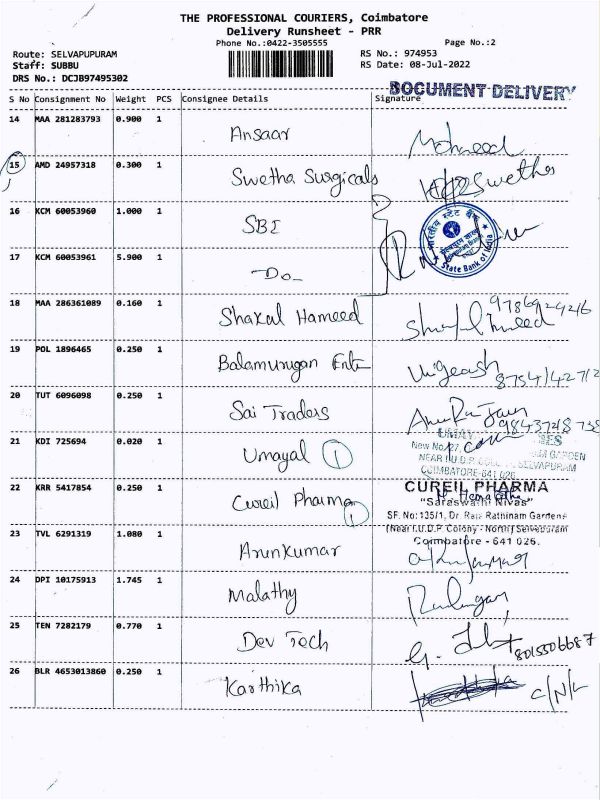 THE PROFESSIONAL COURIERS, Coimbatore
Delivery Runsheet - PRR
Phone No.:0422-3505555
Page No.:2
Route: SELVAPUPURAM
RS No.: 974953
Staff: SUBBU
RS Date: 08-Jul-2022
DRS No.: DCJB97495302
DOCUMENT DELIVERY
S No Consignment No Weight PCS Consignee Details Signature
14 MAA 281283793 0.900 1 Ansaar
15 AMD 24957318 0.300 1 Swetha Surgicals Swetha
16 KCM 60053960 1.000 1 SBI
भारतीय स्टेट बैंक
State Bank of India
17 KCM 60053961 5.900 1 -Do-
18 MAA 286361089 0.160 1 Shakal Hameed
19 POL 1896465 0.250 1 Balamurugan Ente
20 TUT 6096098 0.250 1 Sai Traders
21 KDI 725694 0.020 1 Umayal 1
UMAY
New No:27,
NEAR I.U.D.P. SELVAPURAM
COIMBATORE-641 026
22 KRR 5417854 0.250 1 Cureil Pharma 1
CUREIL PHARMA
"Saraswathi Nivas"
SF. No: 135/1, Dr. Raja Rathinam Gardens
(Near I.U.D.P. Colony - North) Selvapuram
Coimbatore - 641 026.
23 TVL 6291319 1.080 1 Arunkumar
24 DPI 10175913 1.745 1 Malathy
25 TEN 7282179 0.770 1 Dev Tech
8015506687
26 BLR 4653013860 0.250 1 Karthika C/N/L